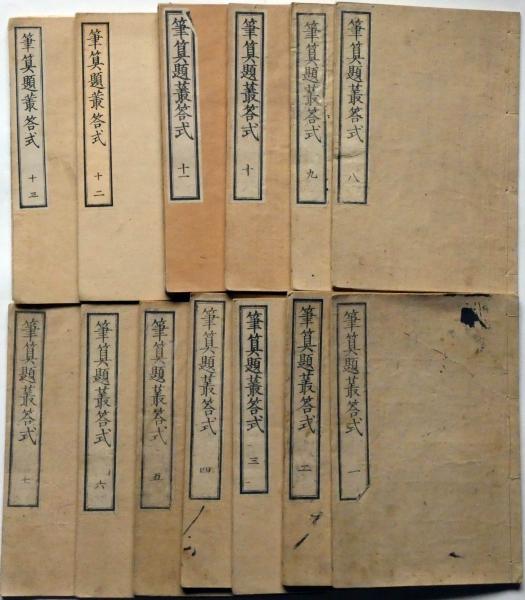 筆算題叢答式 八
筆算題叢答式 九
筆算題叢答式 十
筆算題叢答式 十一
筆算題叢答式 十二
筆算題叢答式 十三
筆算題叢答式 一
筆算題叢答式 二
筆算題叢答式 三
筆算題叢答式 四
筆算題叢答式 五
筆算題叢答式 六
筆算題叢答式 七